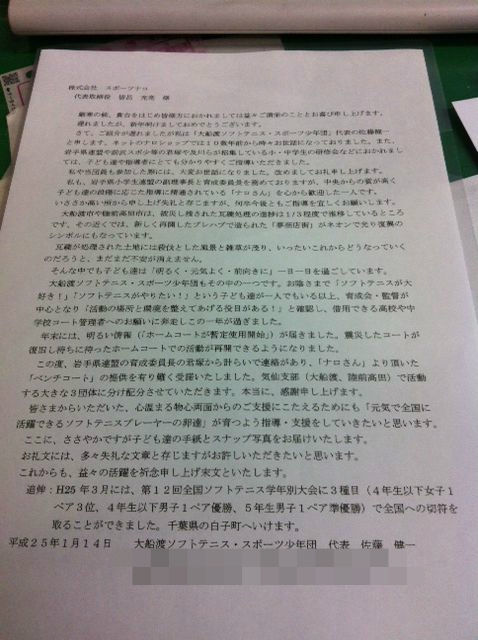 株式会社 スポーツナロ
代表取締役 皆呂 充亮 様
厳寒の候、貴台をはじめ皆様方におかれましては益々ご清栄のこととお喜び申し上げます。
遅れましたが、新年明けましておめでとうございます。
さて、ご紹介が遅れましたが私は「大船渡ソフトテニス・スポーツ少年団」代表の佐藤健一
と申します。ネットのナロショップでは10数年前から時々お世話になっております。また、
岩手県連盟や前沢スポ少等の君塚や及川らが招集している小・中学生の研修会などにおかれまし
ては、子ども達や指導者にとても分かりやすくご指導いただきました。
私や当団員も参加した際には、大変お世話になりました。改めましてお礼申し上げます。
私も、岩手県小学生連盟の副理事長と育成委員長を務めておりますが、中央からの質が高く
子ども達の段階に応じた指導に精通されている「ナロさん」を心から歓迎した一人です。
いささか高い所から申し上げ失礼と存じますが、何卒今後ともご指導を宜しくお願いします。
大船渡市や陸前高田市は、被災し残された瓦礫処理の進捗は1/3程度で推移しているところ
です。その近くでは、新しく再開したプレハブで造られた「夢商店街」がネオンで光り復興の
シンボルにもなっています。
瓦礫が処理された土地には殺伐とした風景と雑草が茂り、いったいこれからどうなっていく
のだろうと、まだまだ不安が消えません。
そんな中でも子ども達は「明るく・元気よく・前向きに」一日一日を過ごしています。
大船渡ソフトテニス・スポーツ少年団もその中の一つです。お陰さまで「ソフトテニスが大
好き！」「ソフトテニスがやりたい！」という子ども達が一人でもいる以上、育成会・監督が
中心となり「活動の場所と環境を整えてあげる役目がある！」と確認し、借用できる高校や中
学校コート管理者へのお願いに奔走しこの一年が過ぎました。
年末には、明るい情報（「ホームコートが暫定使用開始」）が届きました。震災したコートが
復旧し待ちに待ったホームコートでの活動が再開できるようになりました。
この度、岩手県連盟の育成委員長の君塚から計らいで連絡があり、「ナロさん」より頂いた
「ベンチコート」の提供を有り難く受諾いたしました。気仙支部（大船渡、陸前高田）で活動
する大きな3団体に分け配分させていただきます。本当に、感謝申し上げます。
皆さまからいただいた、心温まる物心両面からのご支援にこたえるためにも「元気で全国に
活躍できるソフトテニスプレーヤーの輩達」が育つよう指導・支援をしていきたいと思います。
ここに、ささやかですが子ども達の手紙とスナップ写真をお届けいたします。
お礼文には、多々失礼な文章と存じますがお許しいただきたいと思います。
これからも、益々の活躍を祈念申し上げ末文といたします。
追伸：H25年3月には、第12回全国ソフトテニス学年別大会に3種目（4年生以下女子1
ペア3位、4年生以下男子1ペア優勝、5年生男子1ペア準優勝）で全国への切符を
取ることができました。千葉県の白子町へいけます。
平成25年1月14日 大船渡ソフトテニス・スポーツ少年団 代表 佐藤 健一